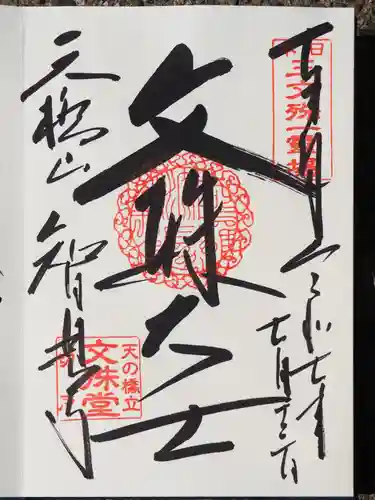 奉拝
日本
三文殊一霊場
令和七年
七月
文殊大士
天橋山 智恩寺
天の橋立
文殊堂